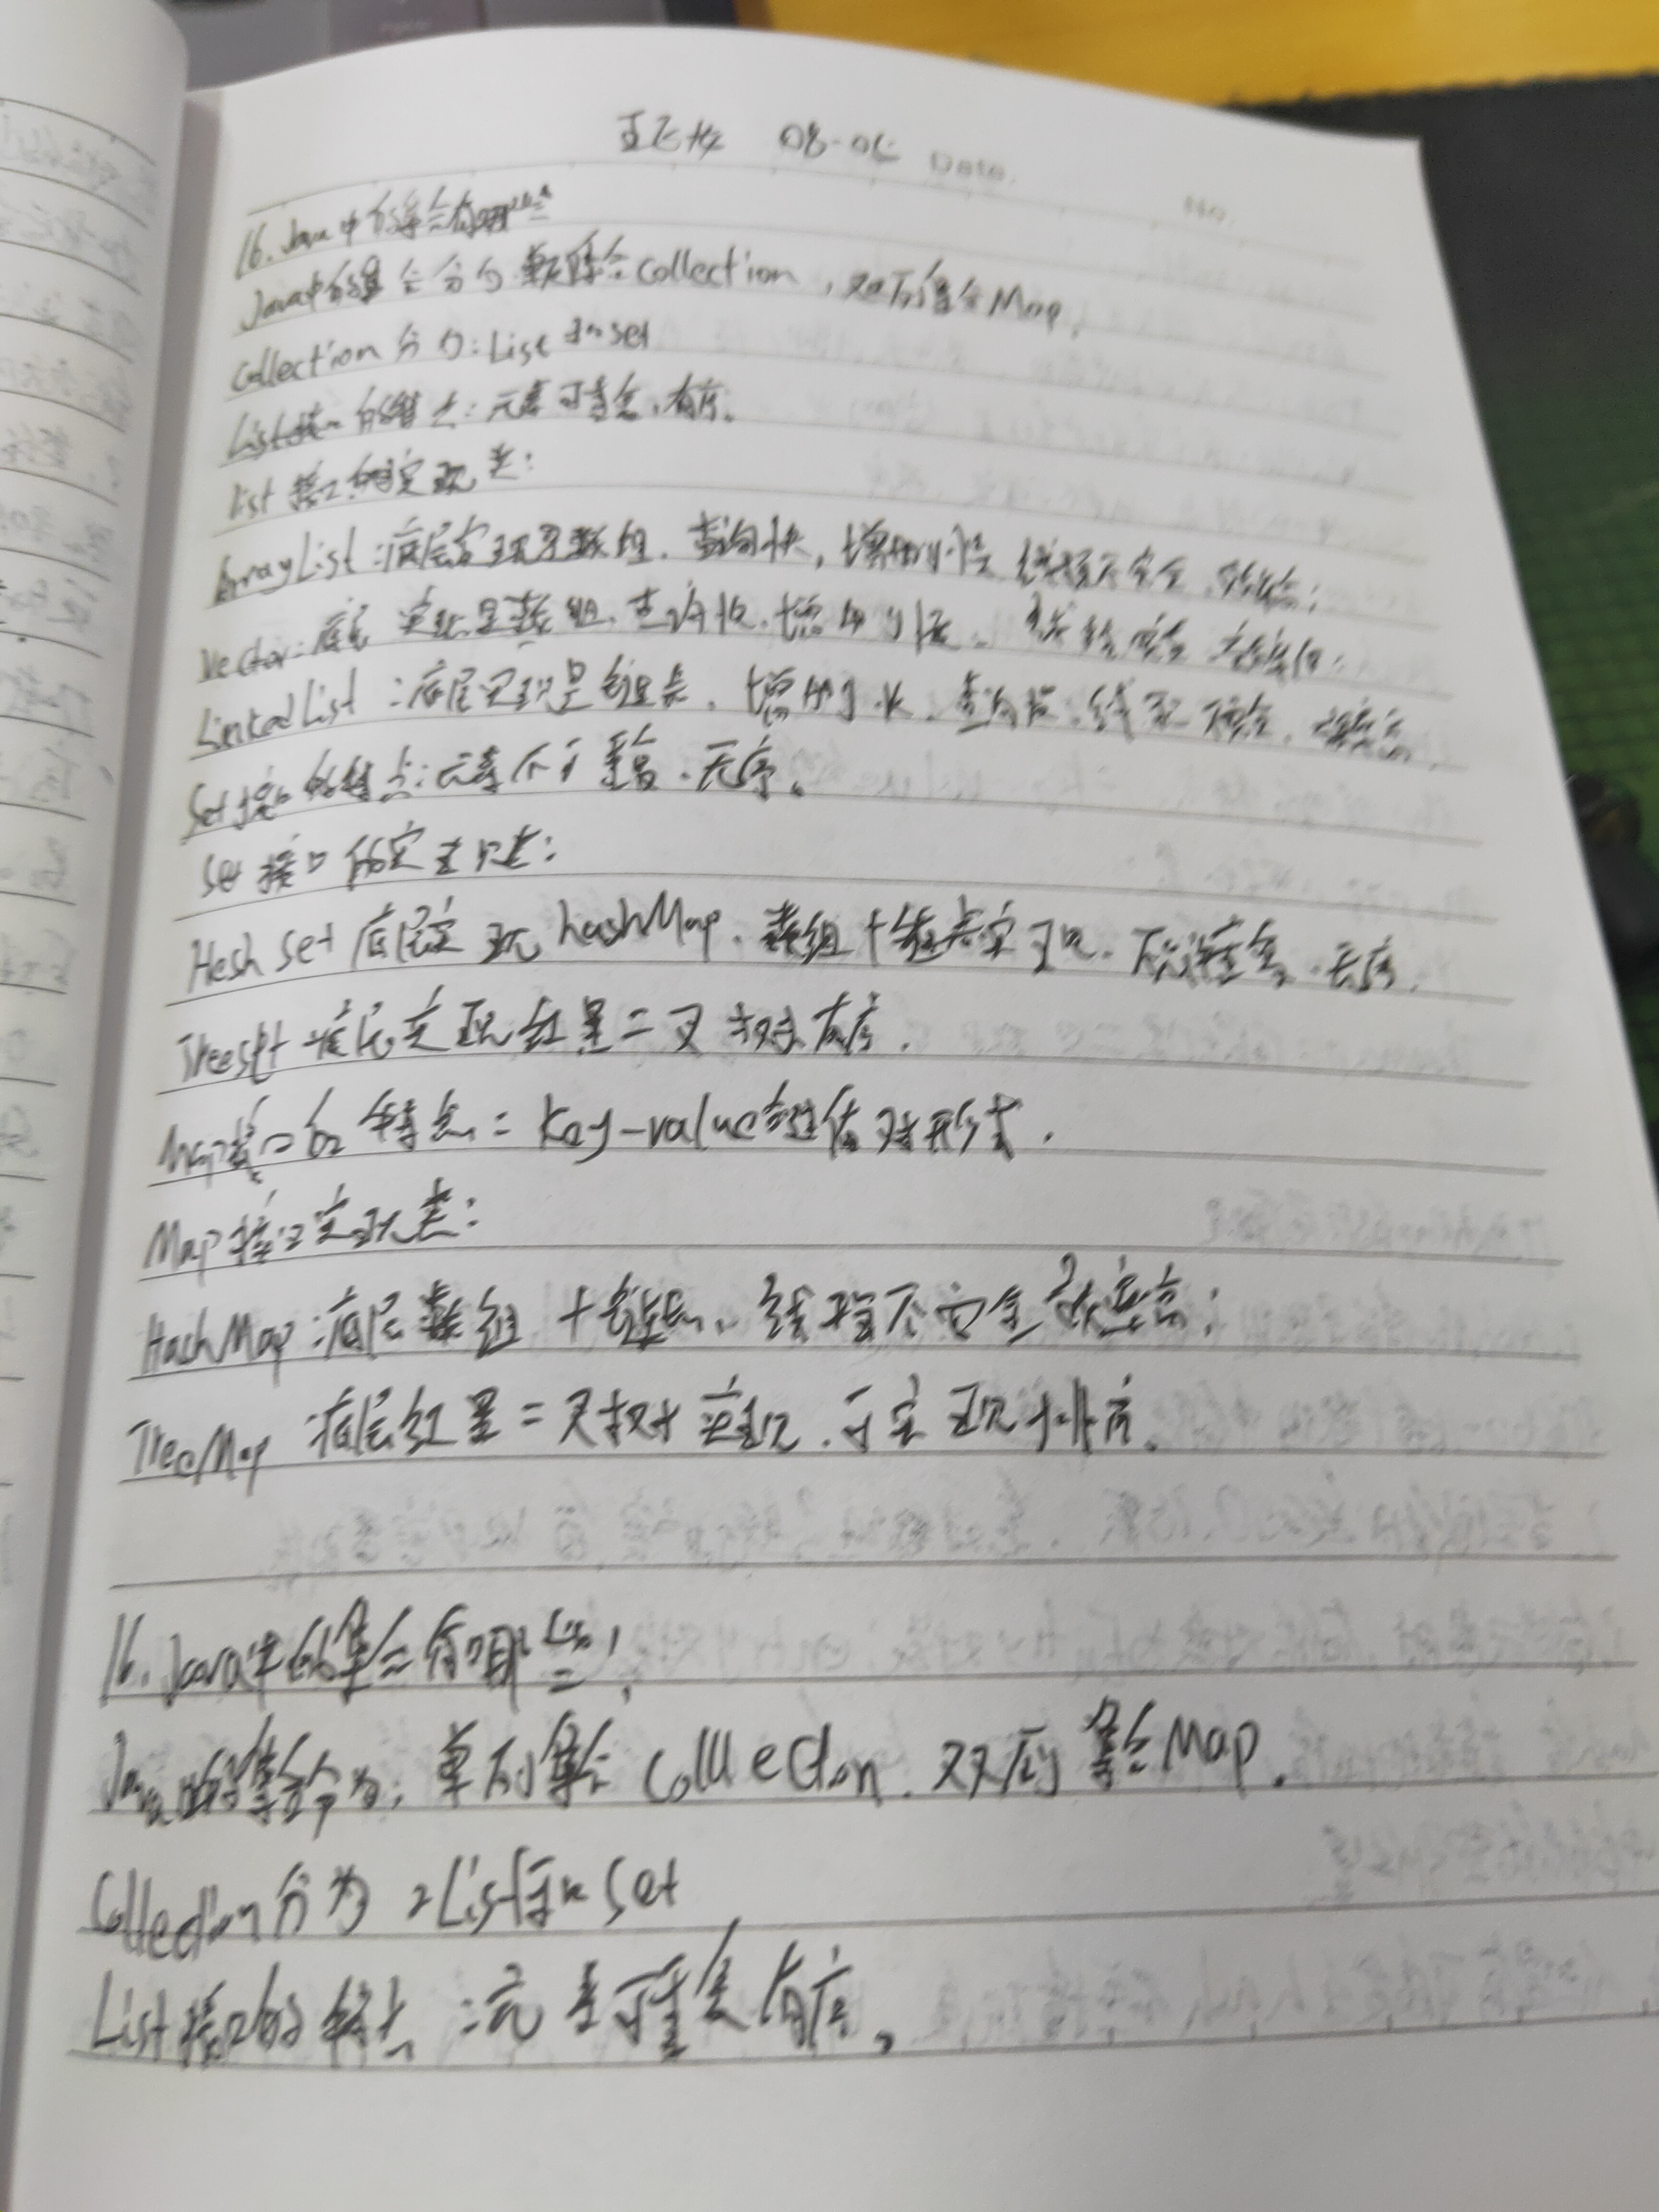 08-05 Date.
No.
16. Java中的集合有哪些
Java中的集合分为单列集合Collection，双列集合Map，
Collection分为：List和Set
List接口的特点：元素可重复、有序。
List 接口的实现类：
ArrayList：底层实现是数组，查询快，增删慢 线程不安全，效率高；
Vector：底层实现是数组，查询快，增删慢，线程安全，效率低；
LinkedList：底层实现是链表，增删快，查询慢，线程不安全，效率高
Set接口的特点：元素不可重复、无序。
Set 接口的实现类：
Hash Set 底层实现hashMap、数组+链表实现、不允许重复、无序．
TreeSet 底层实现红黑二叉树 有序．
Map接口的特点：Key-value键值对形式．
Map接口实现类：
HashMap：底层数组+链表、线程不安全 效率高；
TreeMap 底层红黑二叉树实现．可实现排序。
16. Java中的集合有哪些，
Java的集合分为：单列集合 Collection．双列集合Map．
Collection分为：List和Set
List接口的特点：元素可重复有序，